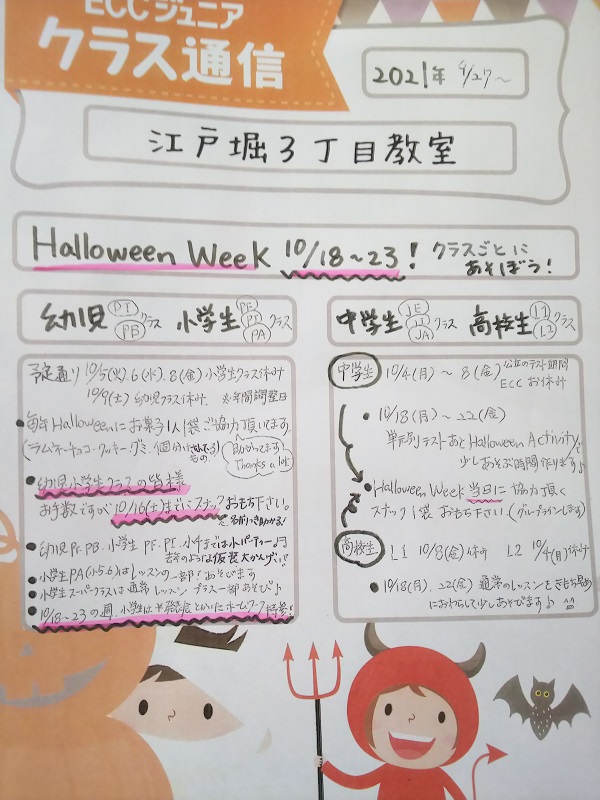 ECCジュニア
クラス通信
2021年 9/27〜
江戸堀3丁目教室
Halloween Week 10/18〜23! クラスごとに
あそぼう!
幼児 PI PB クラス 小学生 PF PI PA クラス
予定通り 10/5(火).6(水).8(金)小学生クラス休み
10/9(土) 幼児クラス休み. ※年間調整日
毎年Halloweenにお菓子1人1袋ご協力頂いてます
(ラムネ・チョコ・クッキー・グミ、個分け
もの
助かってます!
Thanks a lot
幼児小学生クラスの皆様
お手数ですが 10/16(土)までにスナックおもち下さい。
助かる!
幼児PI・PB.小学生PF・PI
仮装大かんげい
小学生PA(小5.6)はレッスンの一部!あそびます
小学生スーパークラスは通常レッスン プラス一部あそび♪
10/18〜23の週、小学生は
ホームワーク
中学生 JE JI JA クラス 高校生 L1 L2 クラス
中学生 10/4(月)〜8(金) 公立のテスト期間
ECC お休み
10/18(月)〜22(金)
単元別テストあと Halloween Activityで
少しあそぶ時間作ります♪
Halloween Week 当日に協力頂く
スナック1袋 おもち下さい
高校生 L1 10/8(金)休み L2 10/4(月)休み
10/18(月).22(金) 通常のレッスンをきもち早め
におわらして少しあそびます♪ ^^